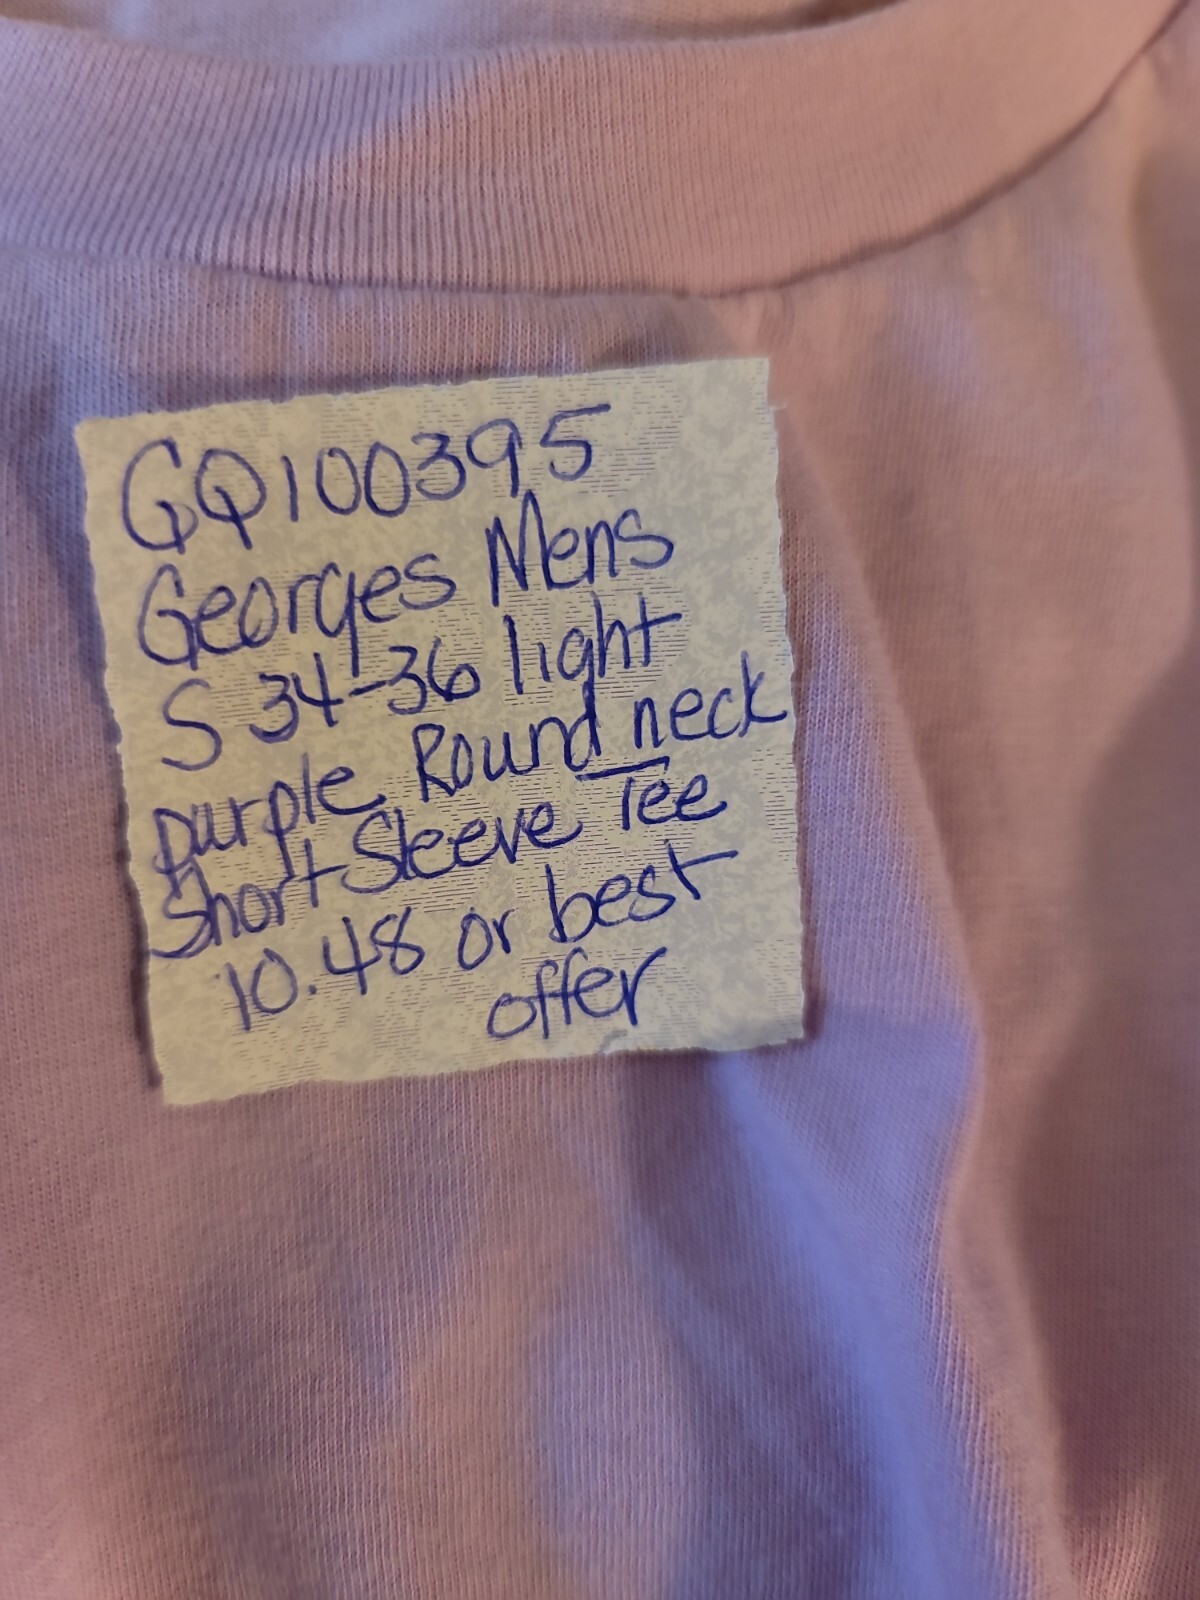 GQ100395
Georges Mens
S 34-36 light
purple Round neck
Short Sleeve Tee
10.48 or best
offer